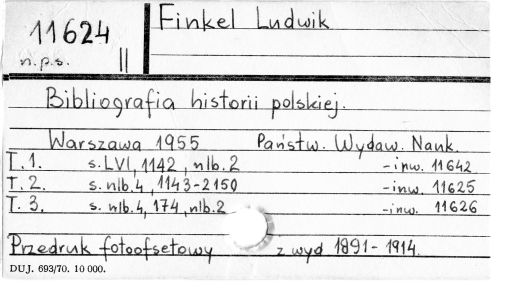 11624 II
n.p.s.
Finkel Ludwik
Bibliografia historii polskiej.
Warszawa 1955 Państw. Wydaw. Nauk.
T. 1. s. LVI, 1142, nlb. 2 - inw. 11642
T. 2. s. nlb. 4, 1143-2150 - inw. 11625
T. 3. s. nlb. 4, 174, nlb. 2 - inw. 11626
Przedruk fotoofsetowy z wyd 1891-1914.
DUJ. 693/70. 10 000.